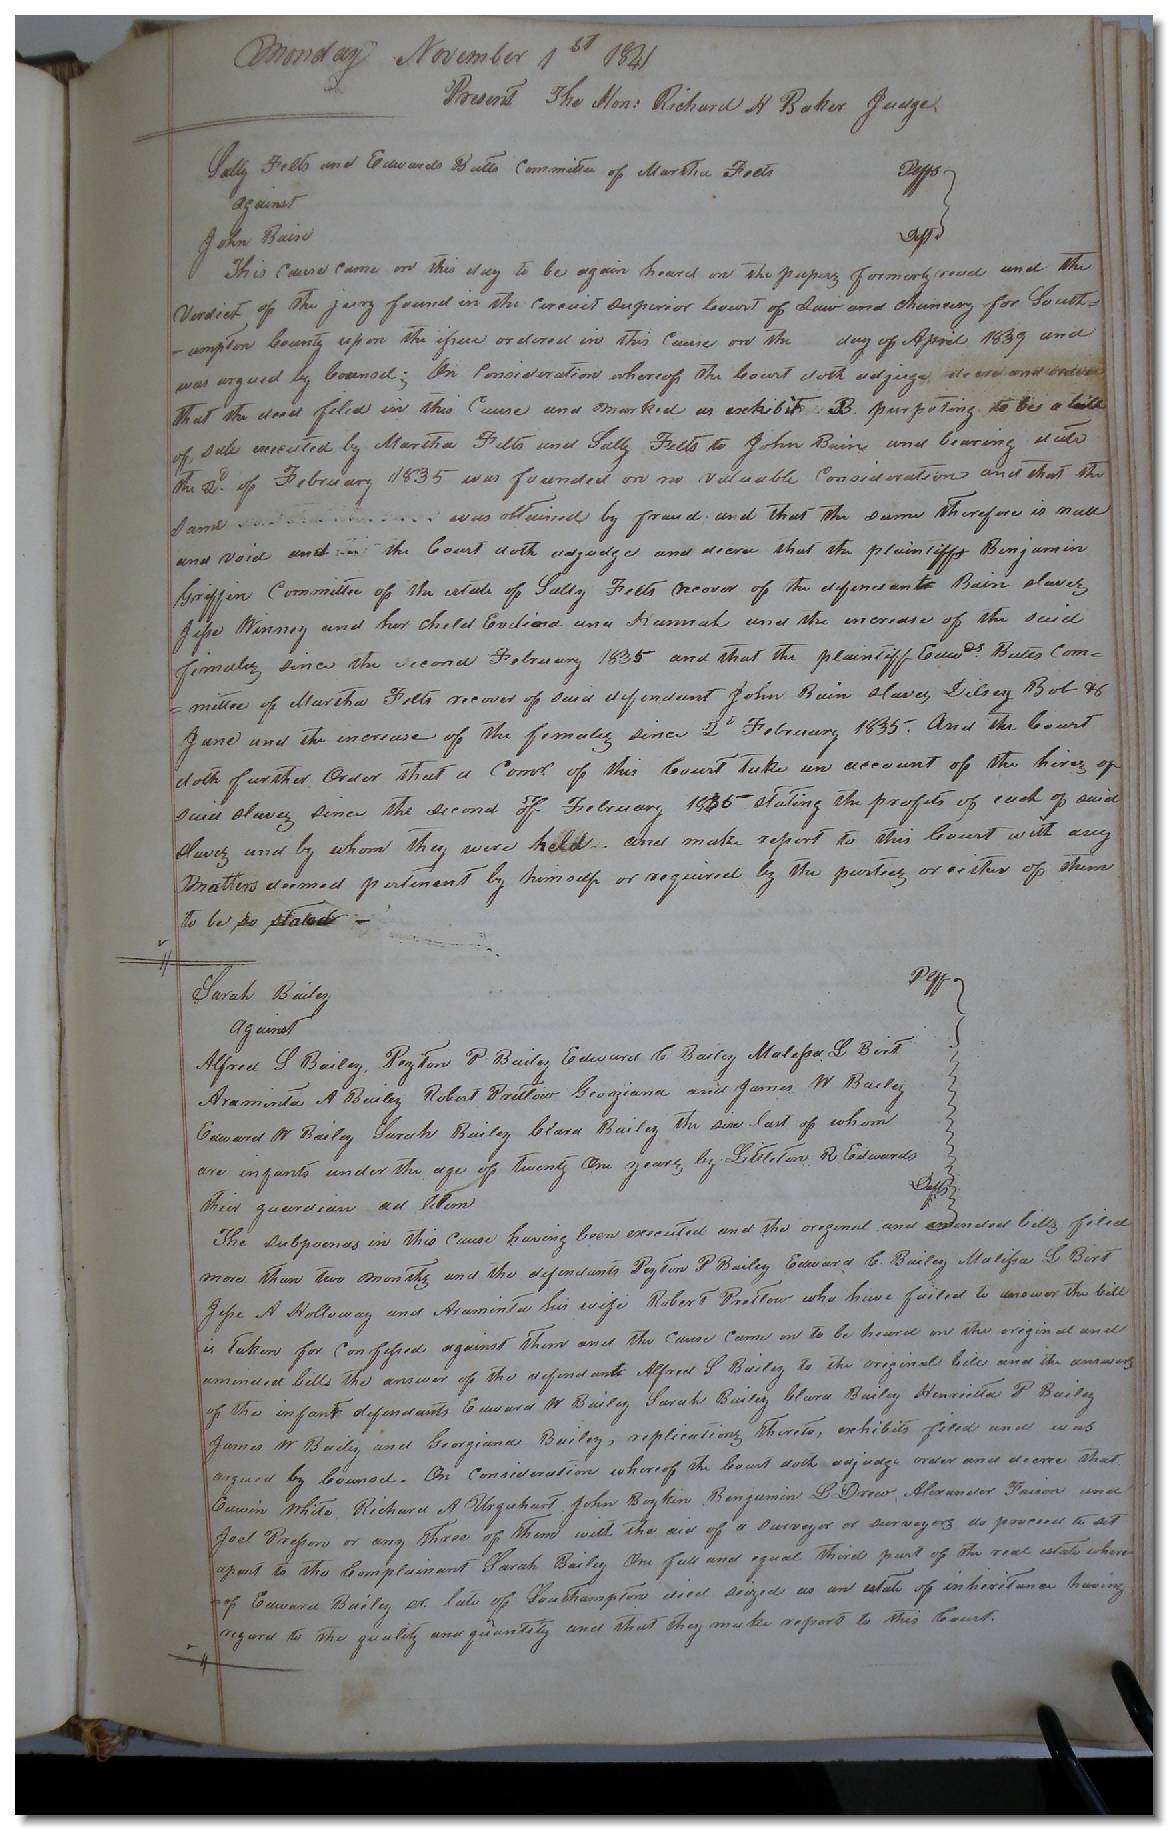 Monday November 1st 1841
Present The Hon: Richard H Baker Judge.
Sally Felts and Edwards Butts Committee of Martha Felts Pltffs
against
John Bain Deft
This cause came on this day to be again heard on the papers formerly read and the
verdict of the jury found in the circuit superior Court of Law and chancery for South=
-ampton County upon the issue ordered in this cause on the day of April 1839 and
was argued by Counsel; On Consideration whereof the Court doth adjuge decree and order
that the deed filed in this Cause and marked as exhibit B. purporting to be a bill
of sale executed by Martha Felts and Sally Felts to John Bain and bearing date
the 2d. of February 1835 was founded on no valuable Consideration and that the
same was obtained by fraud and that the same therefore is null
and void and the Court doth adjudge and decree that the plaintiffs Benjamin
Griffin Committee of the estate of Sally Felts recover of the defendant Bain slaves
Jesse Winney and her child and Hannah and the increase of the said
females since the second February 1835 and that the plaintiff Edwds. Butts Com=
=mittee of Martha Felts recover of said defendant John Bain slaves Dilsey Bob &
Jane and the increase of the females since 2d February 1835. And the Court
doth further Order that a Comr. of this Court take an account of the hires of
said slaves since the second of February 1835 stating the profits of each of said
slaves and by whom they were held and make report to this Court with any
matters deemed pertinent by himself or required by the parties or either of them
to be so stated -
Sarah Bailey Pltff
against
Alfred S Bailey, Peyton P Bailey Edward C Bailey Malissa L Birt
Araminta A Bailey Robert Pretlow Georgiana and James W Bailey
Edward W Bailey Sarah Bailey Clara Bailey the six last of whom
are infants under the age of twenty One years, by Littleton R Edwards
their guardian ad litem Defts
The subpoenas in this cause having been executed and the original and amended bills filed
more than two months and the defendants Peyton P Bailey Edward C. Bailey Malissa L Birt
Jesse A Holloway and Araminta his wife Robert Pretlow who have failed to answer the bill
is taken for confessed against them and the cause came on to be heard on the original and
amended bills the answer of the defendant Alfred S Bailey to the original bill and the answers
of the infant defendants Edward W Bailey Sarah Bailey Clara Bailey Henrietta P Bailey
James W Bailey and Georgiana Bailey, replications thereto, exhibits filed and was
argued by Counsel. On consideration whereof the Court doth adjudge order and decree that
Edwin White, Richard A Urquhart John Boykin Benjamin L Drew Alexander Faison and
Joel Presson or any three of them with the aid of a surveyor or surveyors do proceed to set
apart to the Complainant Sarah Bailey One full and equal third part of the real estate where-
-of Edward Bailey sr. late of Southampton died seized as an estate of inheritance having
regard to the quality and quantity and that they make report to this Court.